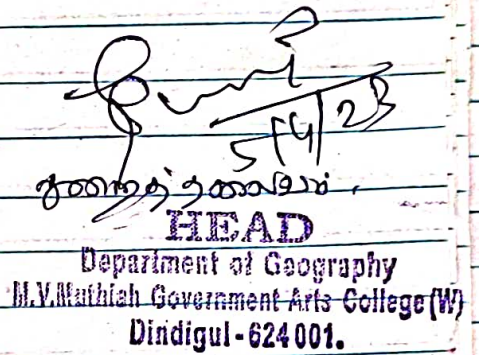 5/4/23
துறைத்தலைவர்.
HEAD
Department of Geography
M.V.Muthiah Government Arts College (W)
Dindigul-624 001.